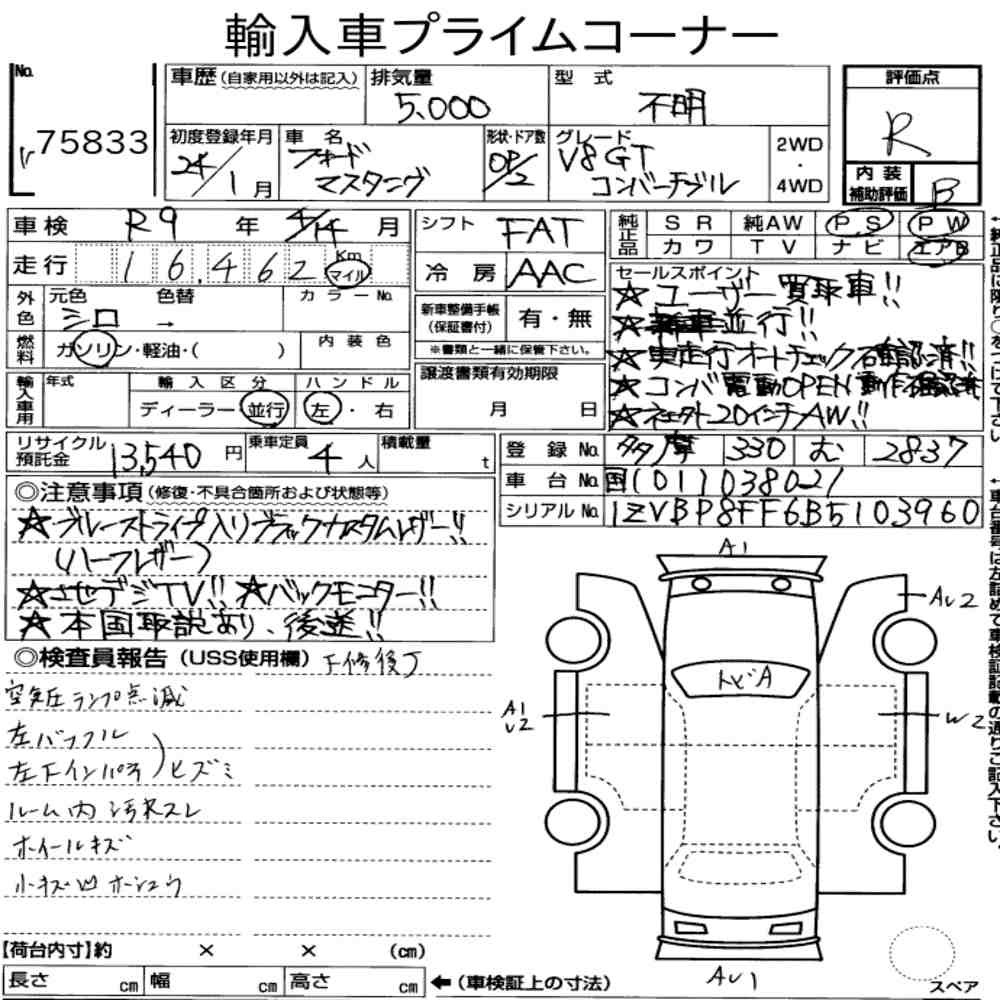 輸入車プライムコーナー
No. 75833
車歴 (自家用以外は記入) 排気量 5,000 型式 不明
評価点 R
初度登録年月 24/1月 車名 フォード マスタング 形状・ドア数 OP/2 グレード V8 GT コンバーチブル 2WD・4WD
内装補助評価 B
車検 R9年 4/14月 シフト FAT 純正品 SR 純AW PS PW
カワ TV ナビ エアB
走行 16,462 Km マイル 冷房 AAC
外色 元色 シロ 色替 → カラーNo.
新車整備手帳 (保証書付) 有・無
※書類と一緒に保管下さい。
燃料 ガソリン・軽油・( ) 内装色
セールスポイント
☆ユーザー買取車!!
☆新車並行!!
☆実走行オートチェック確認済!!
☆コンバ電動OPEN動作確認済
☆ネクスト20インチAW!!
輸入車用 年式 輸入区分 ディーラー・並行 ハンドル 左・右
譲渡書類有効期限 月 日
リサイクル預託金 13,540円 乗車定員 4人 積載量 t
登録No. 多摩 330 む 2837
車台No. 国(01)1038021
シリアルNo. 1ZVBP8FF6B5103960
◎注意事項 (修復・不具合箇所および状態等)
☆ブルーストライプ入りブラックカスタムレザー!!
(ハーフレザー)
☆社外デジTV!! ☆バックモニター!!
☆本国取説あり、後送!!
◎検査員報告 (USS使用欄) 下修後J
空気圧ランプ点滅
左バッフル
左下インパネ)ヒズミ
ルーム内汚れスレ
ホイールキズ
小キズ凹ホシュウ
【荷台内寸】約 × × (cm)
長さ cm 幅 cm 高さ cm ←(車検証上の寸法)
A1
AU2
トビA
A1
U2
W2
AU1
スペア
↑純正品は限り○をつけて下さい。
↑車台番号は左詰めで車検証記載の通りご記入下さい。